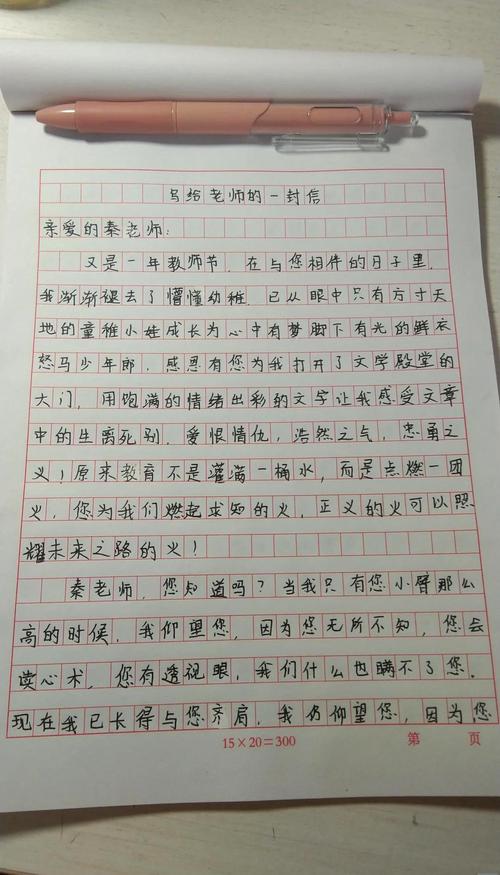 写给老师的一封信
亲爱的秦老师:
又是一年教师节,在与您相伴的日子里,
我渐渐褪去了懵懂幼稚,已从眼中只有方寸天
地的童稚小娃成长为心中有梦脚下有光的鲜衣
怒马少年郎,感恩有您为我打开了文学殿堂的
大门,用饱满的情绪出彩的文字让我感受文章
中的生离死别,爱恨情仇,浩然之气,忠勇之
义!原来教育不是灌满一桶水,而是点燃一团
火,您为我们燃起求知的火,正义的火可以照
耀未来之路的火!
秦老师,您知道吗?当我只有您小臂那么
高的时候,我仰望您,因为您无所不知,您会
读心术,您有透视眼,我们什么也瞒不了您.
现在我已长得与您齐肩,我仍仰望您,因为您
15×20=300 第 页